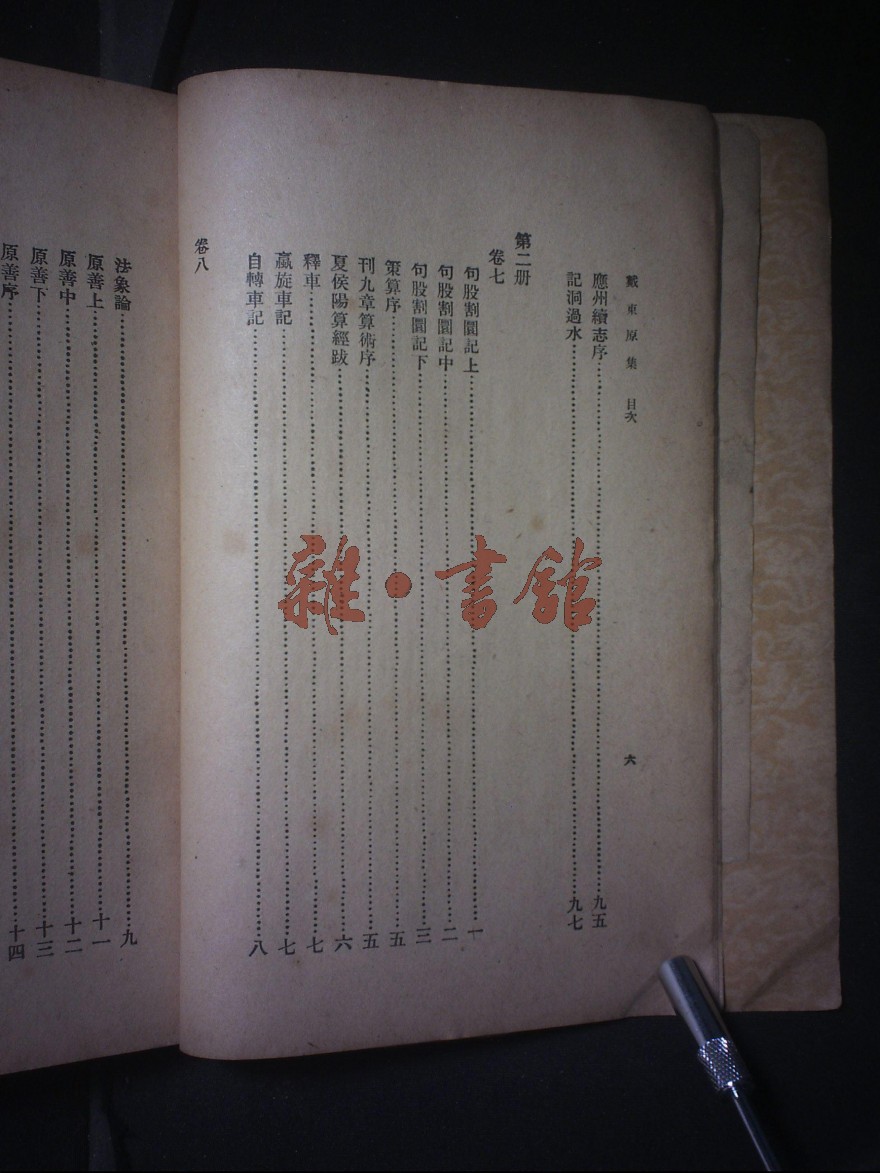 戴東原集 目次 六
應州續志序 九五
記洞過水 九七
第二册
卷七
句股割圜記上 一
句股割圜記中 二
句股割圜記下 三
策算序 五
刊九章算術序 五
夏侯陽算經跋 六
釋車 七
蠃旋車記 七
自轉車記 八
卷八
法象論 九
原善上 十一
原善中 十二
原善下 十三
原善序 十四
雜·書館